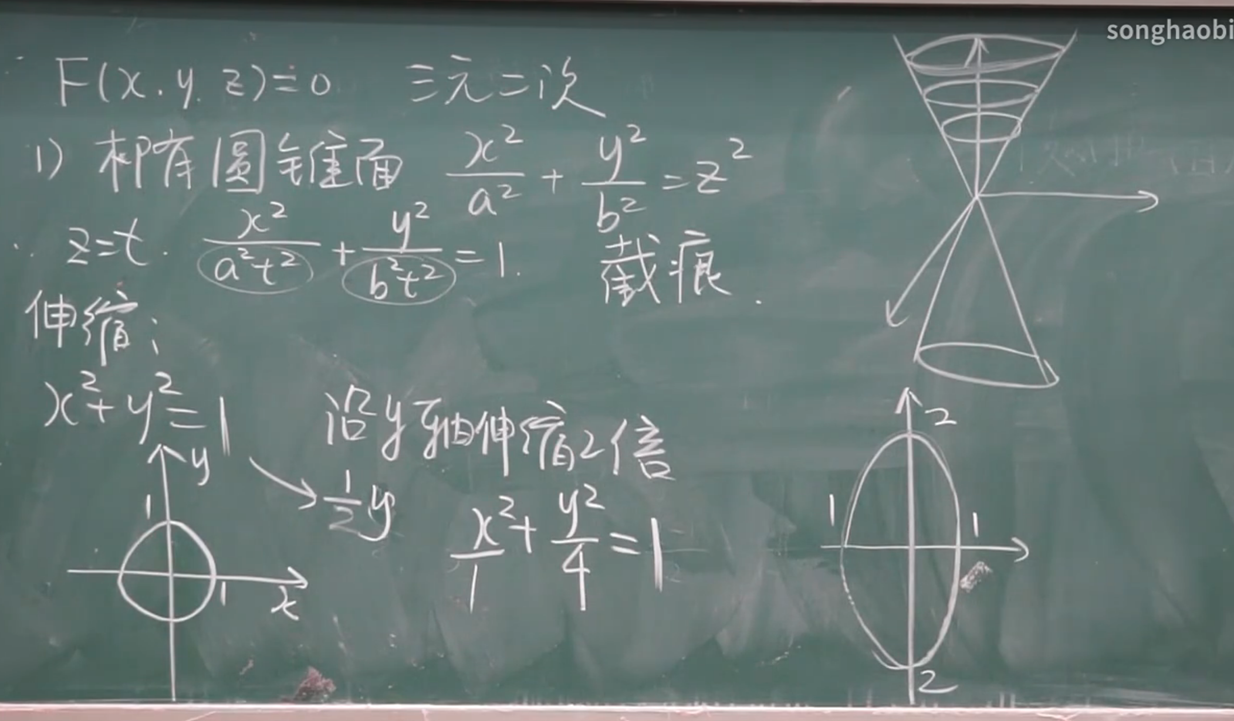 songhaobi
F(x,y,z)=0 三元二次
1) 椭圆锥面 x²/a² + y²/b² = z²
z=t. x²/(a²t²) + y²/(b²t²) = 1. 截痕.
伸缩:
x²+y²=1 沿y轴伸缩2倍
½y x²/1 + y²/4 = 1
y
1
1
x
2
1
1
2